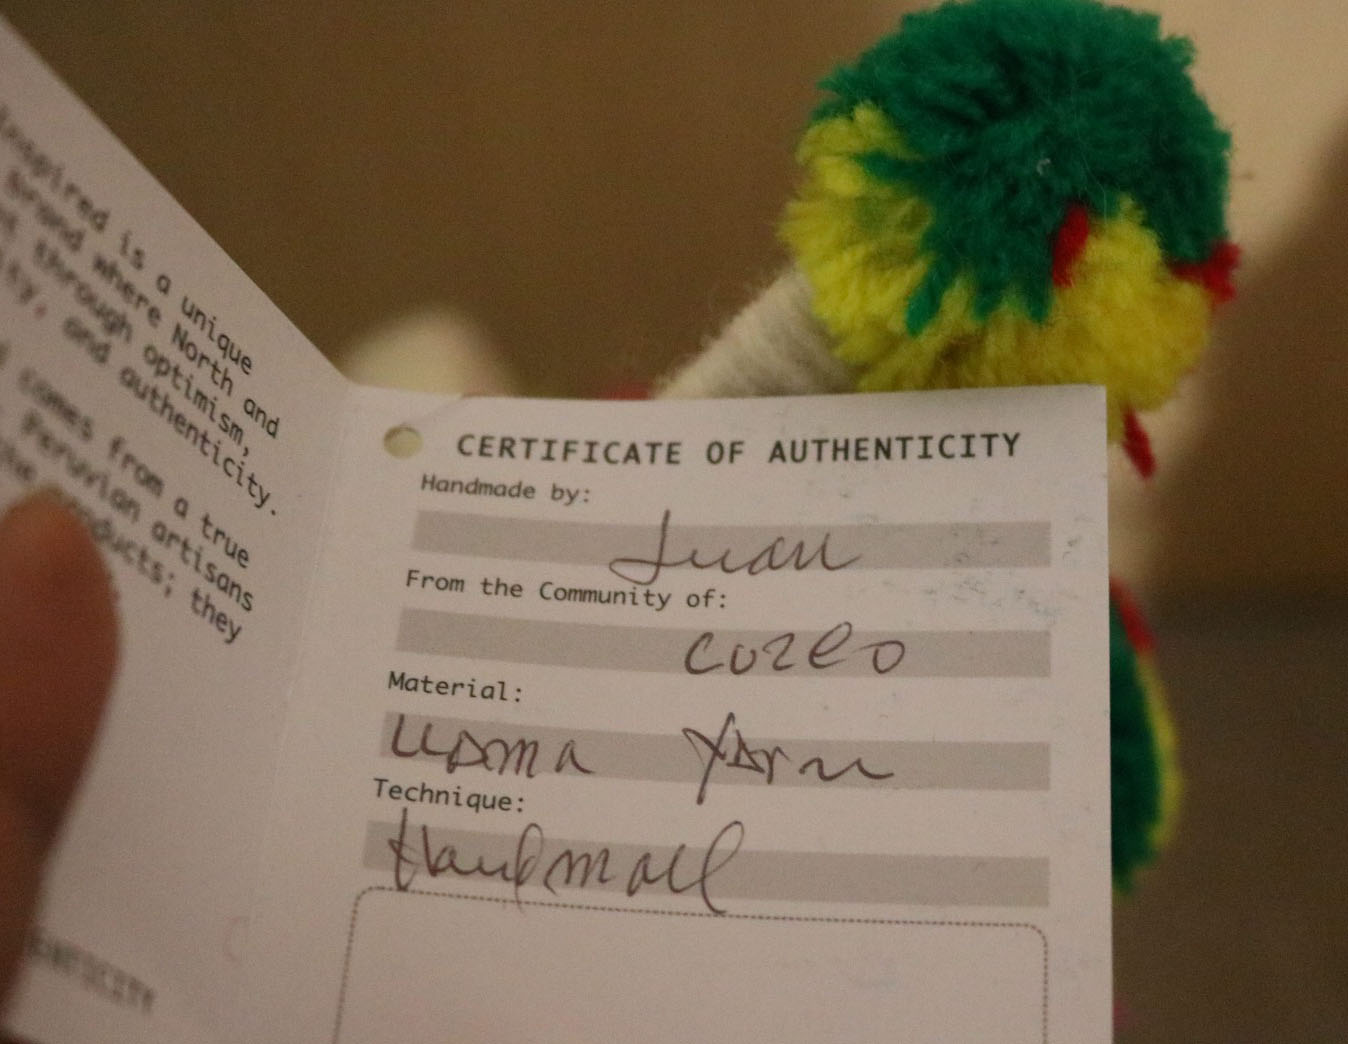 Inspired is a unique
Brand where North and
through optimism,
and authenticity.
comes from a true
Peruvian artisans
products; they
CERTIFICATE OF AUTHENTICITY
Handmade by:
Juan
From the Community of:
Cuzco
Material:
Yarn
Technique:
Handmade